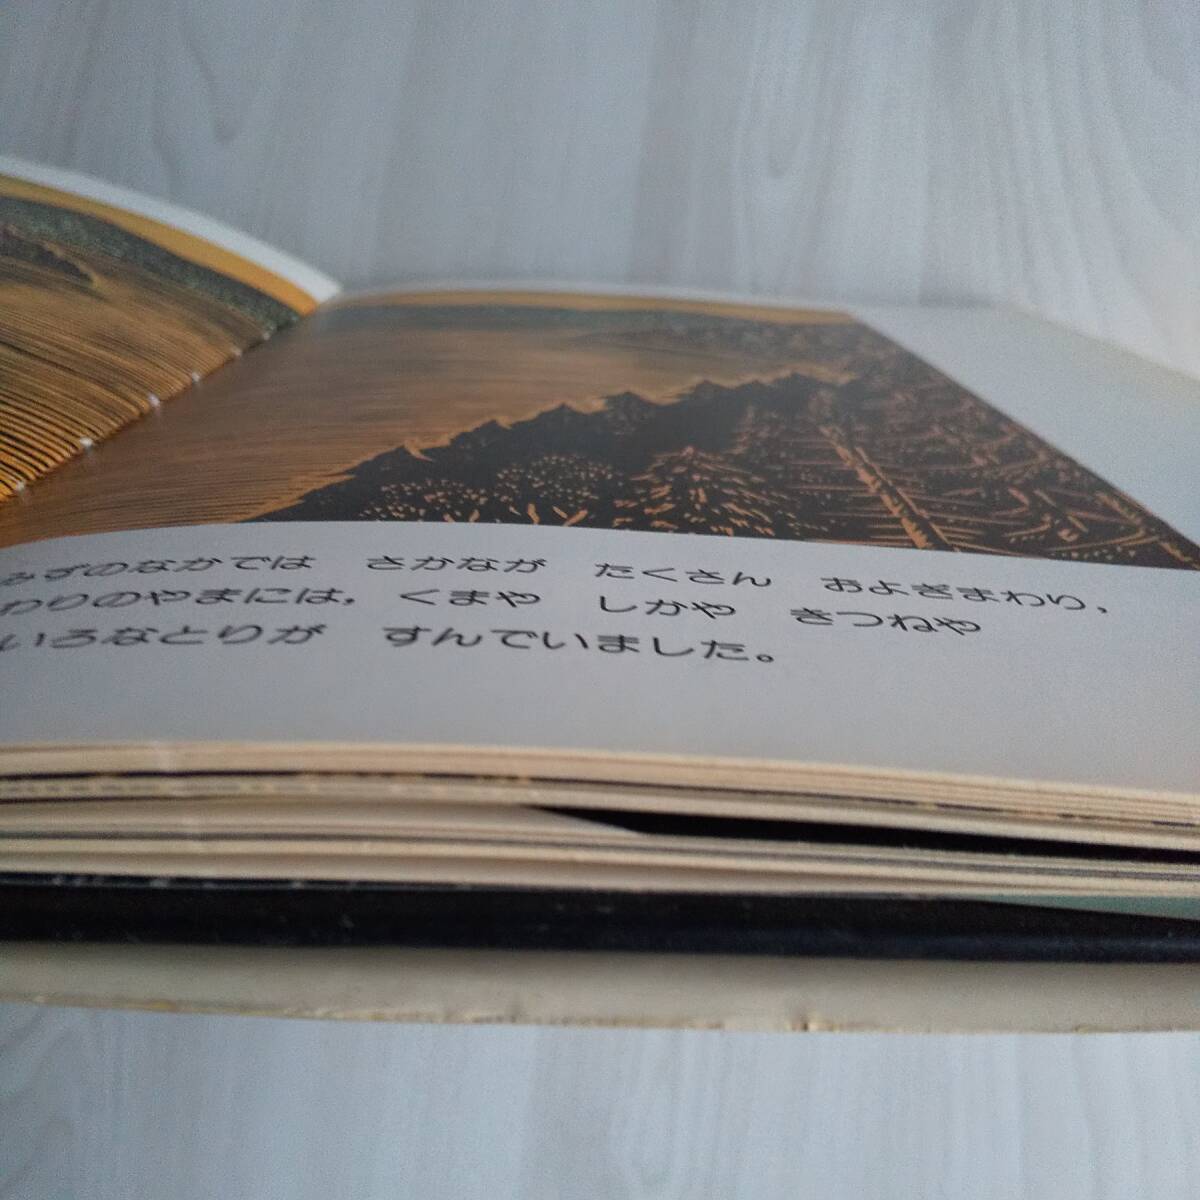 みずのなかでは　さかなが　たくさん　およぎまわり,
わりのやまには,　くまや　しかや　きつねや
いろなとりが　すんでいました。